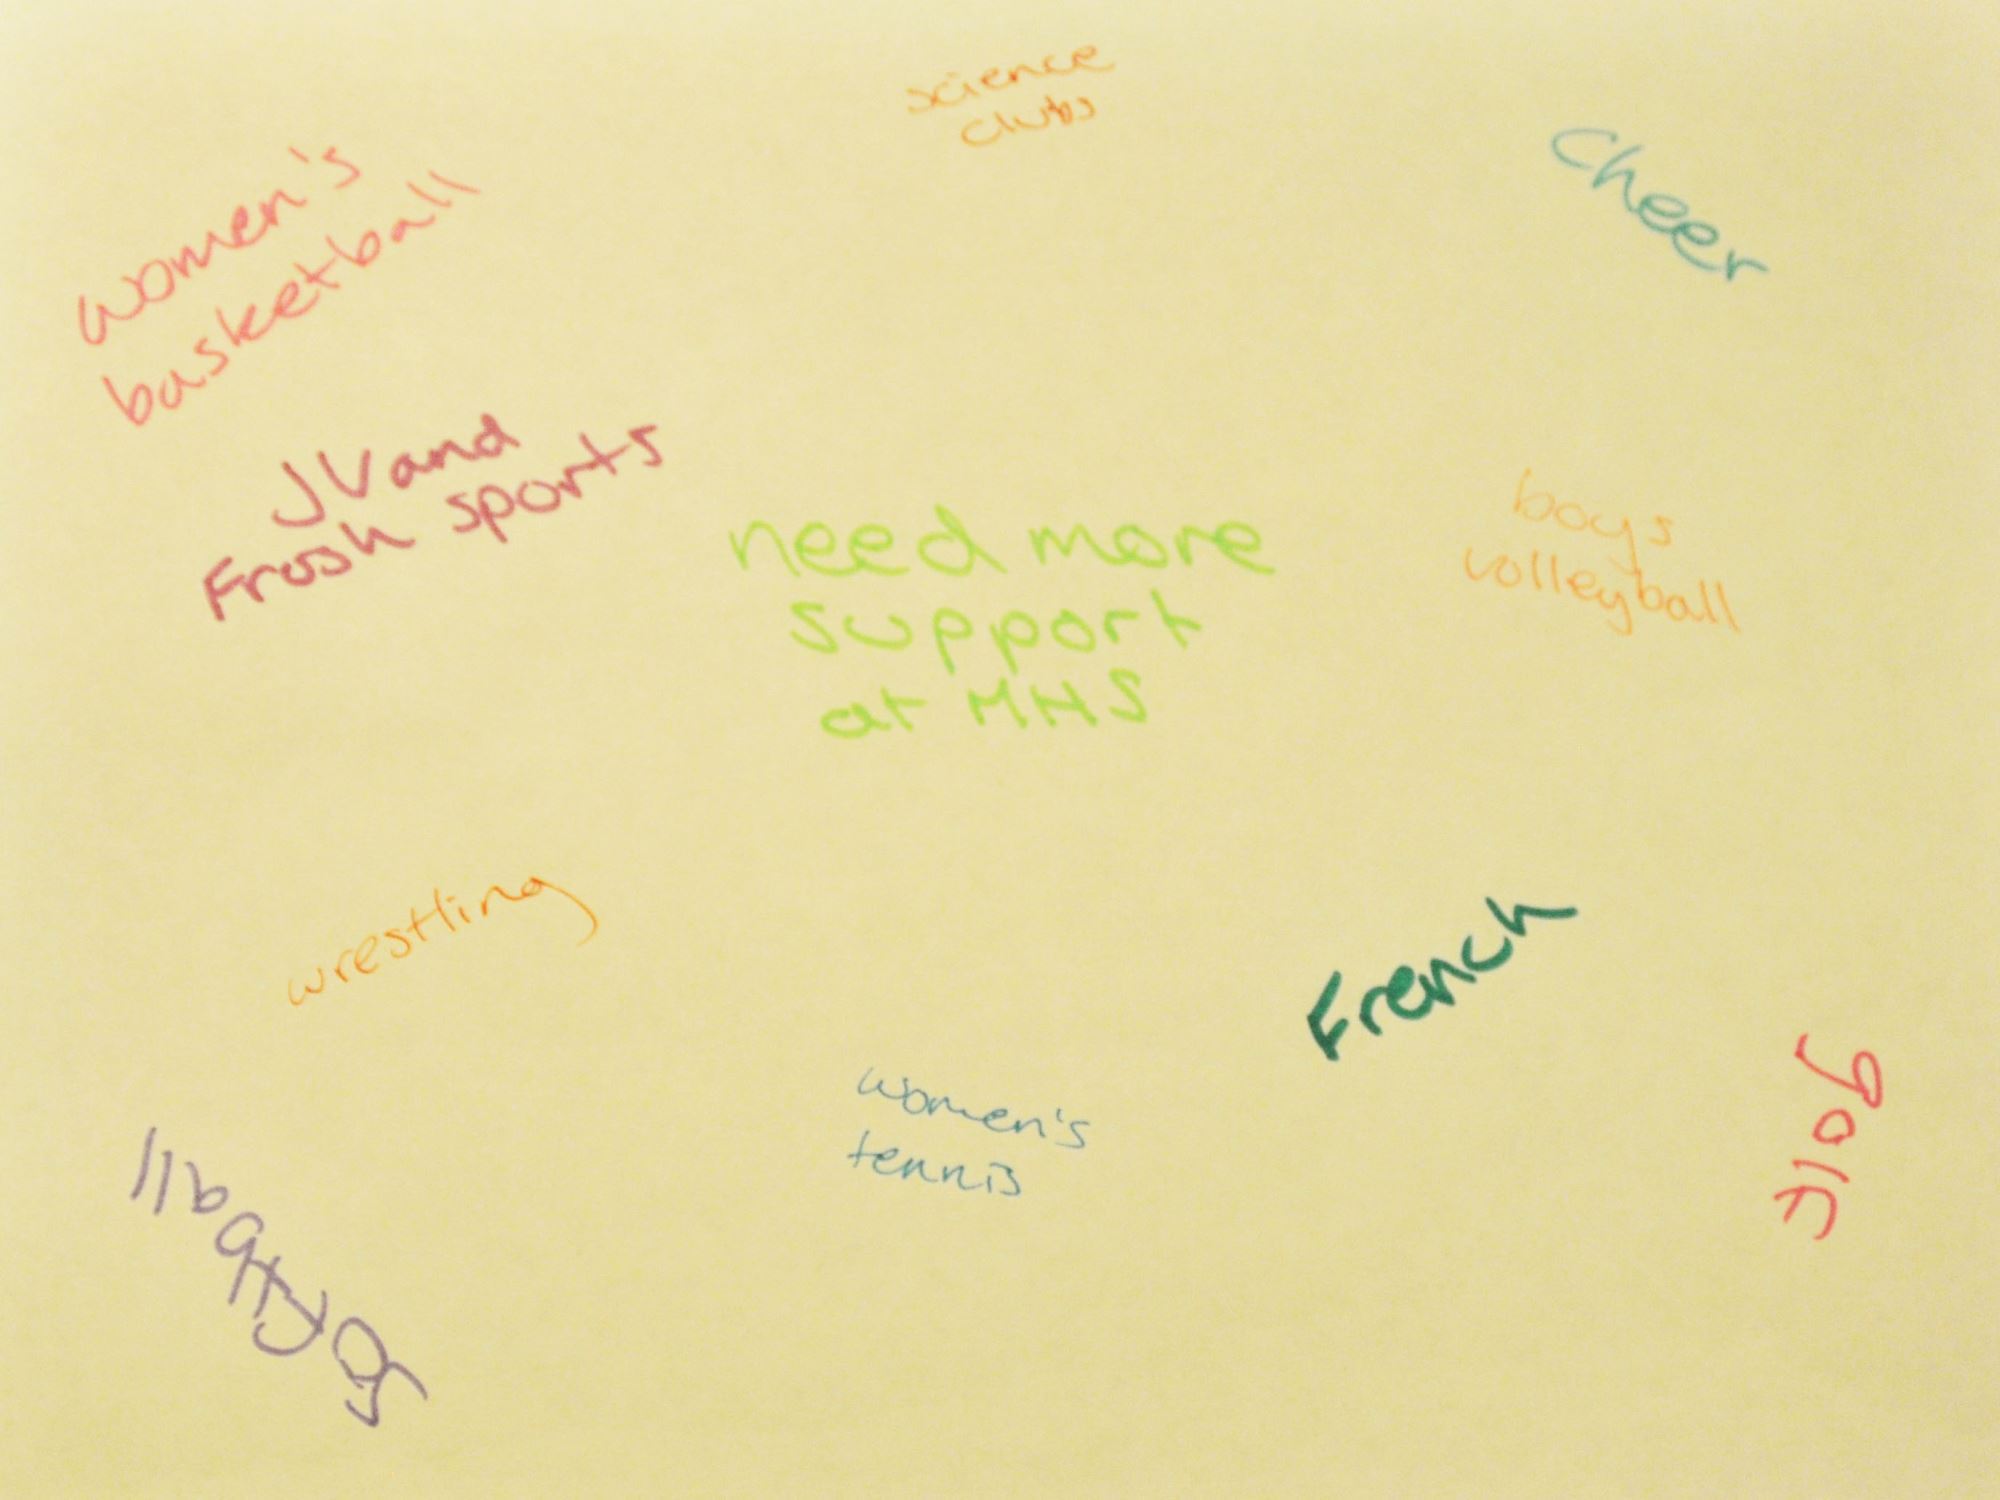 science
clubs
Cheer
women's
basketball
JV and
Frosh sports
need more
support
at MHS
boys
volleyball
wrestling
French
golf
women's
tennis
softball